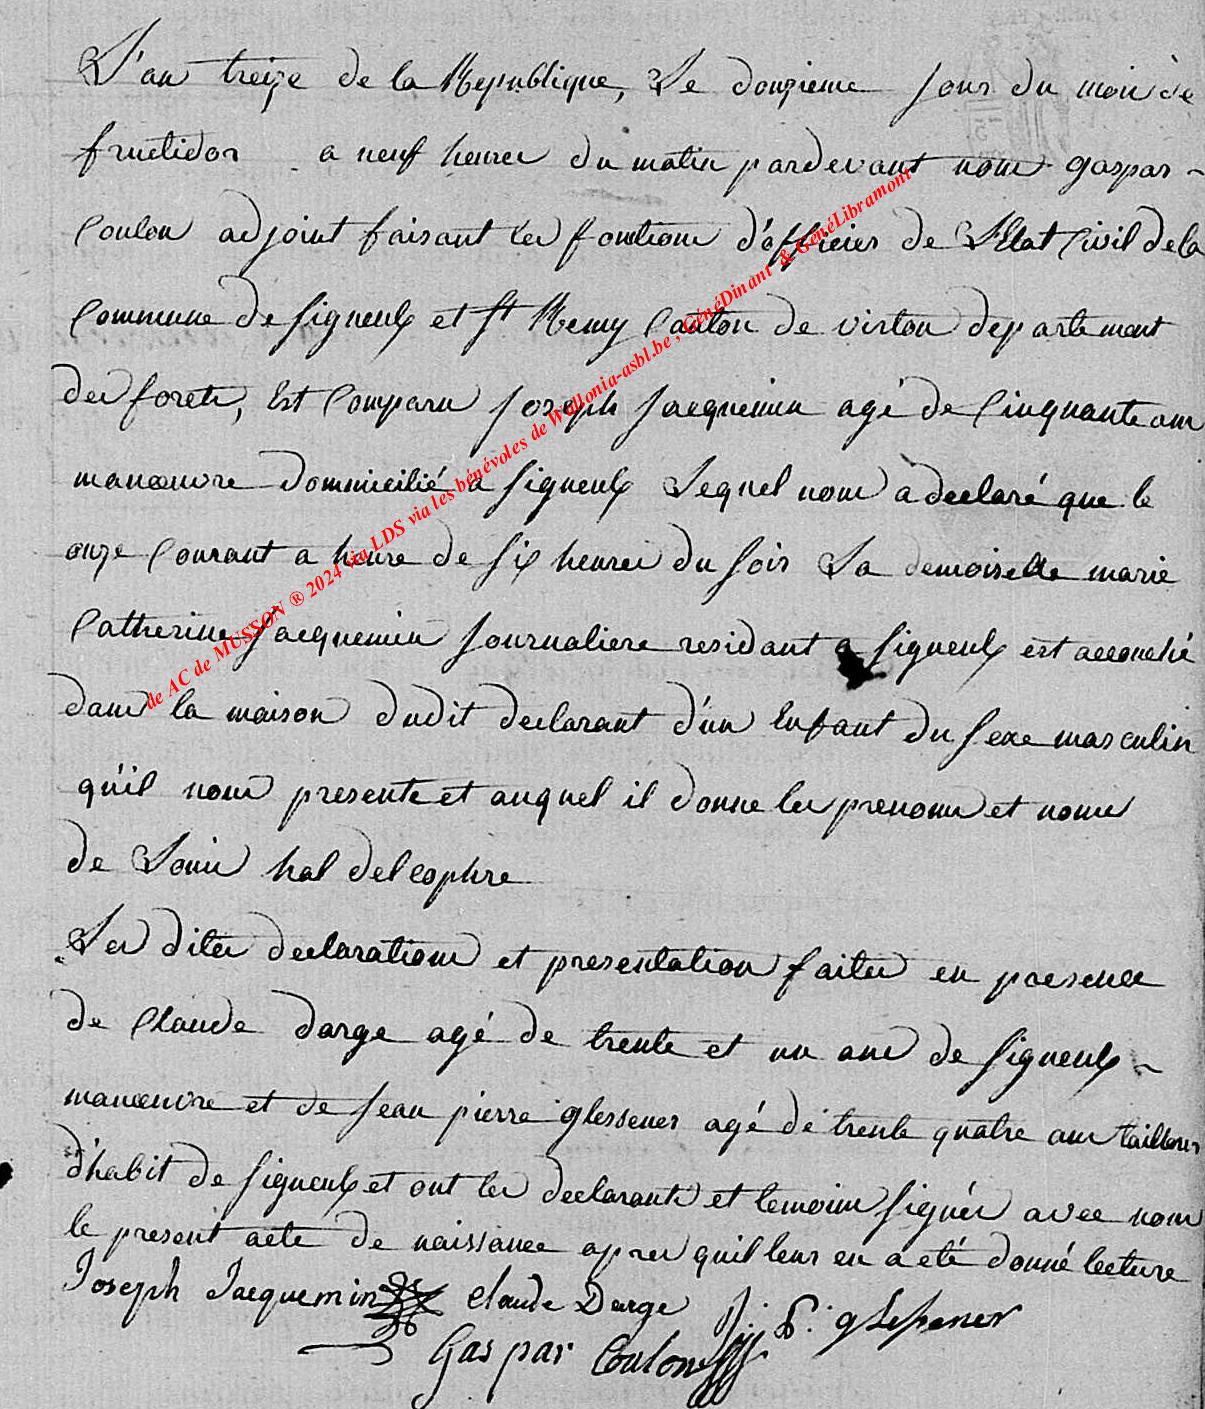 L'an treize de la Republique, Le douzieme jour du mois de
fructidor a neuf heures du matin pardevant nous gaspar -
Coulon adjoint faisant les fonctions d'officier de L'Etat Civil de la
Commune de Signeulx et St Remy Canton de virton departement
des forets, Est Comparu joseph jacquemin agé de Cinquante ans
manœuvre dommicilié a Signeulx Lequel nous a declaré que le
onze Courant a heure de six heures du soir La demoiselle marie
Catherine jacquemin journaliere residant a Signeulx est accouché
dans la maison dudit declarant d'un Enfant du sexe masculin
qu'il nous presente et auquel il donne les prenoms et noms
de Louis hal delcophre
Les dites declarations et presentation faites en presence
de Claude darge agé de trente et un ans de Signeulx ~
manœuvre et de jean pierre glessener agé de trente quatre ans tailleur
d'habit de Signeulx et ont les declarants et temoins signés avec nous
le present acte de naissance apres quil leur en a eté donné lecture
Joseph Jacquemin Claude Darge J: P: glessener
Gaspar Coulon
de AC de MUSSON ® 2024 via LDS via les bénévoles de Wallonia-asbl.be , GénéDinant & GénéLibramont